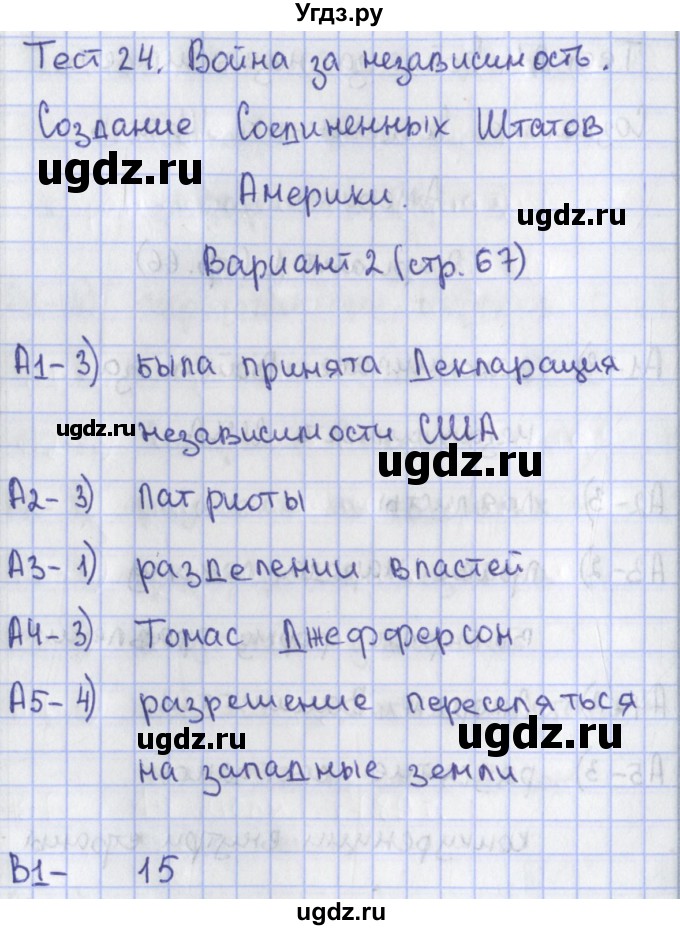 Угдз.ру
Тест 24. Война за независимость.
Создание Соединенных Штатов
ugdz.ru
Америки.
ugdz.ru
Вариант 2 (стр. 67)
А1- 3) была принята Декларация
ugdz.ru независимости США
ugdz.ru
А2- 3) патриоты
А3- 1) разделении властей
А4- 3) Томас Джефферсон
А5- 4) разрешение переселяться
ugdz.ru ugdz.ru
на западные земли
В1- 15
ugdz.ru